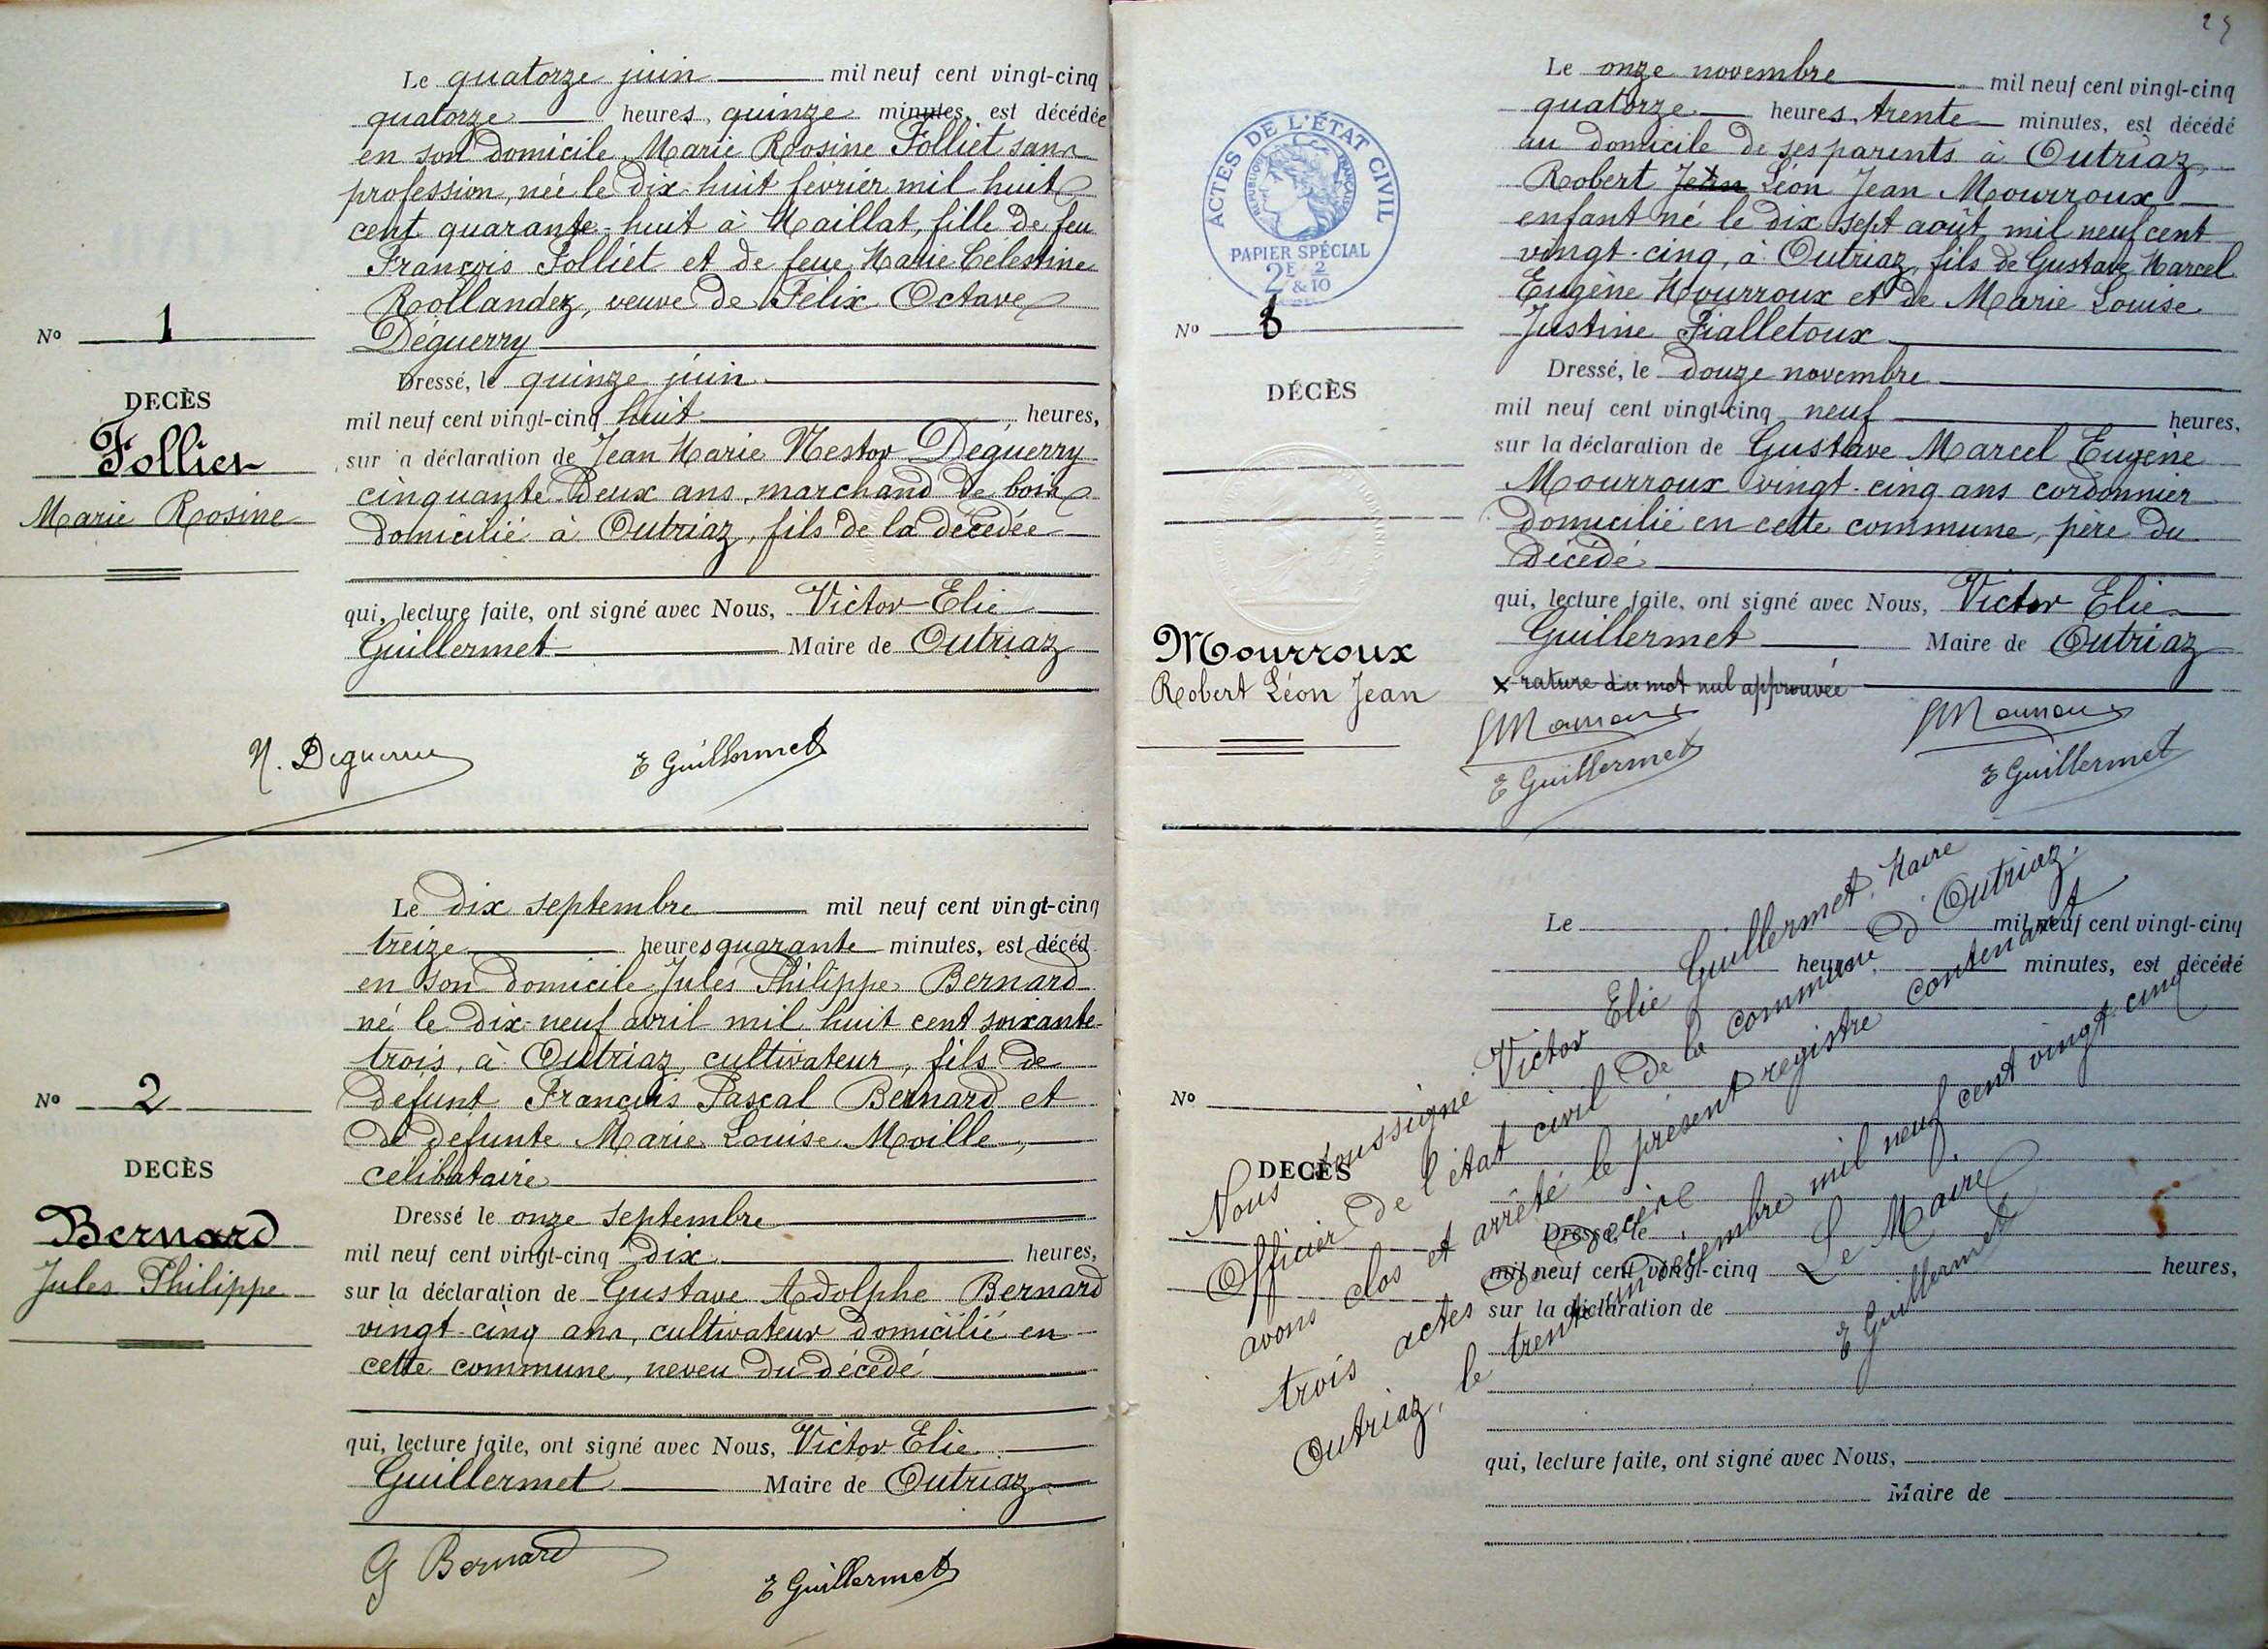 Le quatorze juin mil neuf cent vingt-cinq
quatorze heures, quinze minutes, est décédée
en son domicile Marie Rosine Folliet sans
profession, née le dix-huit fevrier mil huit
cent quarante-huit à Maillat, fille de feu
François Folliet et de feue Marie Célestine
Rollandez, veuve de Félix Octave
Déguerry
No 1
DECÈS
Folliet
Marie Rosine
Dressé, le quinze juin
mil neuf cent vingt-cinq huit heures,
sur a déclaration de Jean Marie Nestor Déguerry
cinquante-deux ans, marchand de bois
domicilié à Outriaz, fils de la décédée
qui, lecture faite, ont signé avec Nous, Victor Elie
Guillermet Maire de Outriaz
N. Deguerry
E Guillermet
Le dix septembre mil neuf cent vingt-cinq
treize heures quarante minutes, est décéd
en son domicile Jules Philippe Bernard
né le dix-neuf avril mil huit cent soixante-
trois, à Outriaz, cultivateur, fils de
defunt François Pascal Bernard et
de defunte Marie Louise Moille,
célibataire
No 2
DECÈS
Bernard
Jules Philippe
Dressé le onze septembre
mil neuf cent vingt-cinq dix heures,
sur la déclaration de Gustave Adolphe Bernard
vingt-cinq ans, cultivateur domicilié en
cette commune, neveu du décédé
qui, lecture faite, ont signé avec Nous, Victor Elie
Guillermet Maire de Outriaz
G Bernard
E Guillermet
25
ACTES DE L'ÉTAT CIVIL
RÉPUBLIQUE FRANÇAISE
PAPIER SPÉCIAL
2E & 2/10
Le onze novembre mil neuf cent vingt-cinq
quatorze heures, trente minutes, est décédé
au domicile de ses parents à Outriaz,
Robert Jean Léon Jean Mourroux
enfant né le dix sept août mil neuf cent
vingt-cinq, à Outriaz, fils de Gustave Marcel
Eugène Mourroux et de Marie Louise
Justine Fialletoux
No 3
DÉCÈS
Mourroux
Robert Léon Jean
Dressé, le douze novembre
mil neuf cent vingt-cinq neuf heures,
sur la déclaration de Gustave Marcel Eugène
Mourroux vingt-cinq ans cordonnier
domicilié en cette commune, père du
décédé
qui, lecture faite, ont signé avec Nous, Victor Elie
Guillermet Maire de Outriaz
x rature du mot nul approuvée
GMourroux
GMourroux
E Guillermet
E Guillermet
Le mil neuf cent vingt-cinq
heures, minutes, est décédé
No
DECÈS
Dressé, le
mil neuf cent vingt-cinq heures,
sur la déclaration de
qui, lecture faite, ont signé avec Nous,
Maire de
Nous soussigné Victor Elie Guillermet, Maire
Officier de l'état civil de la commune d'Outriaz,
avons clos et arrêté le présent registre contenant
trois actes
Outriaz, le trente un décembre mil neuf cent vingt cinq.
Le Maire
E Guillermet